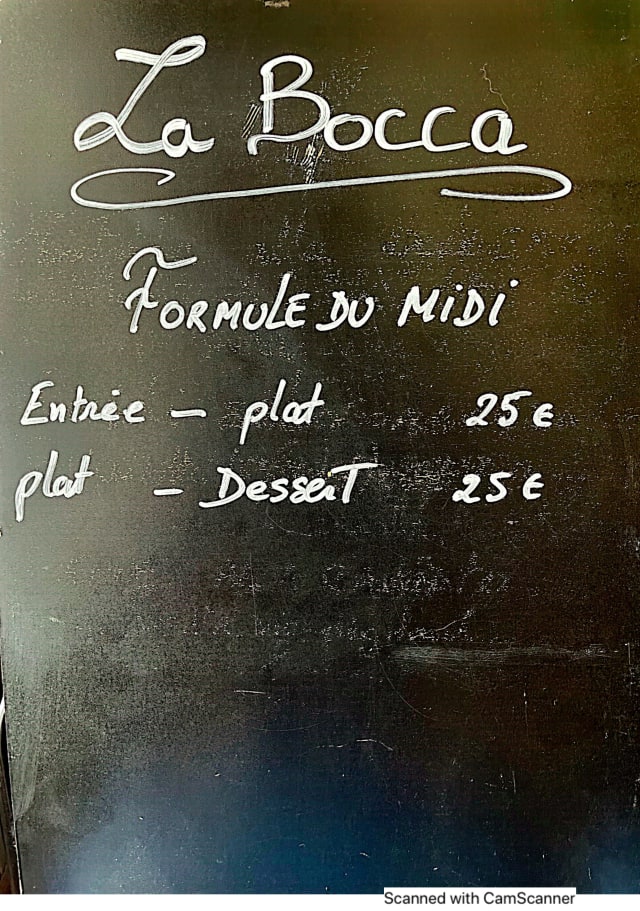 La Bocca
FORMULE DU MiDi
Entrée - plat 25 €
plat - Dessert 25 €
Scanned with CamScanner